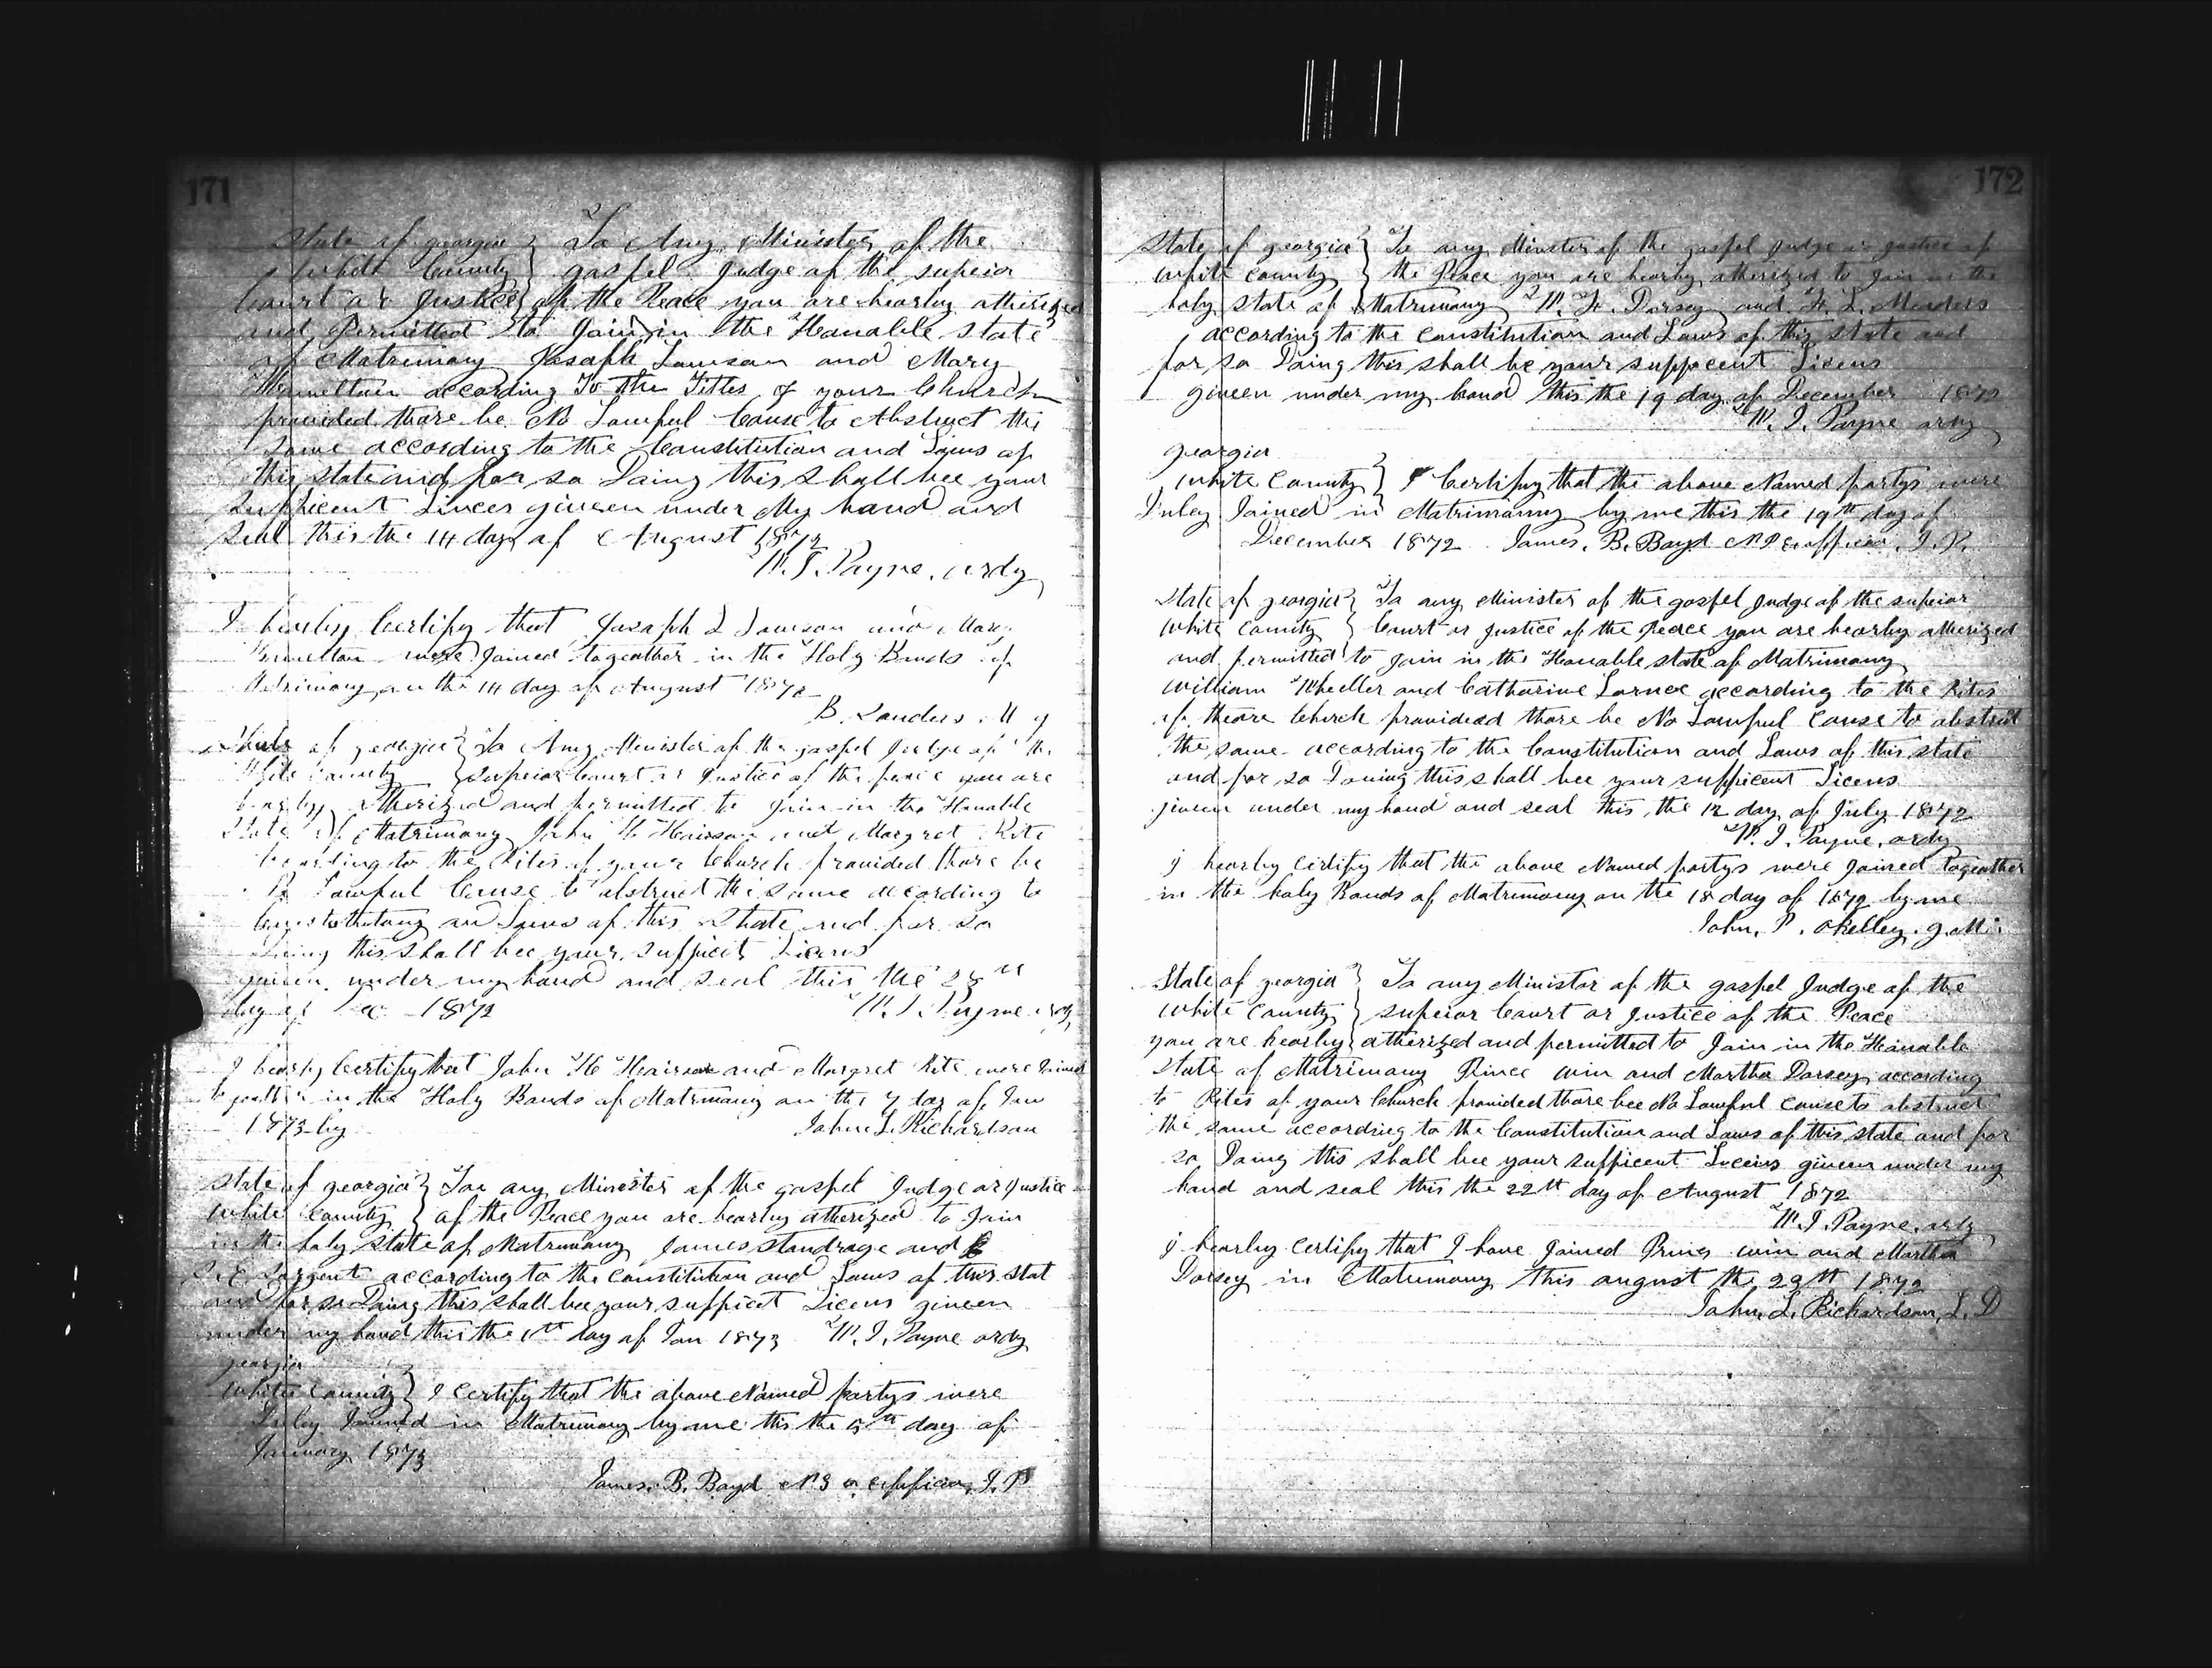 171
State of georgia } To Any Minister of the
White County } gospel Judge of the supeior
Court or Justice of the Peace you are hearby atherized
and Permitted to Join in the Honable state
of Matrimony Joseph Lawson and Mary
according To the Titles of your Church
provided thare be No Lawful Cause to Abstruct the
same according to the Constitution and Laws of
this state and for so Doing this shall bee your
sufficent Linces giveen under My hand and
seal this the 14 day of August 1872
W. T. Payne, ordy
I hearby Certify that Joseph L Lawson and Mary
were Joined togeather in the Holy Bands of
Matrimony on the 14 day of August 1872
B. Landers, M g
State of georgia } To Any Minister of the gospel Judge of the
White County } Superior Court or Justice of the peace you are
hearby atherized and permitted to Join in the Honable
State of Matrimony John H Hairson and Margret Rite
according to the Rites of your Church provided thare be
No Lawful Cause to abstruct the same according to
an Laws of this State and for so
Doing this shall bee your sufficit Licens
giveen under my hand and seal this the 28
day of 1872 W. T. Payne ordy
I hearby Certify that John H Hairson and Margret Rite were Joined
togeather in the Holy Bands of Matrimony on the 7 day of Jan
1873 by John L. Richardson
State of georgia } To any Minister of the gospel Judge or Justice
White County } of the Peace you are hearby atherized to Join
in the holy state of Matrimony James Standrage and
Sargent according to the constitution and Laws of this stat
and for so Doing this shall bee your sufficet Licens giveen
under my hand this the 1st day of Jan 1873 W. T. Payne ordy
georgia
White County } I certify that the above Named partys were
Duley Joined in Matrimony by me this the 5th day of
January 1873
James. B. Boyd N P & exofficio, J. P
172
State of georgia } To any Minister of the gospel Judge or Justice of
White County } the Peace you are hearby atherized to Join in the
holy state of Matrimony W. H. Dorsey and H. L. Meaders
according to the constitution and Laws of this state and
for so Doing this shall be your supficent Licens
giveen under my hand this the 19 day of December 1872
W. T. Payne ordy
georgia
White County } I Certifuy that the above Named partys were
Duley Joined in Matrimony by me this the 19th day of
December 1872 James. B. Boyd N P & exofficio. J. P.
State of georgia } To any Minister of the gospel Judge of the supeior
White County } Court or Justice of the Peace you are hearby atherized
and permitted to Join in the Honable state of Matrimony
William Wheller and Catharine Lornce according to the Rites
of theare Church provideed thare be No Lawful Cause to abstruct
the same according to the Constitution and Laws of this state
and for so Doning this shall bee your sufficent Licens
giveen under my hand and seal this the 12 day of July 1872
W. T. Payne, ordy
I hearby Certify that the above Named partys were Joined togeather
in the holy Bands of Matrimony on the 18 day of 1872 by me
John. P. Okelley, g. M.
State of georgia } To any Minister of the gospel Judge of the
White County } supeior Court or Justice of the Peace
you are hearby atherized and permitted to Join in the Honable
State of Matrimony Prince Win and Martha Dorsey according
to Rites of your Church provided thare bee No Lawful cause to abstruct
the same according to the Constitution and Laws of this state and for
so Doing this shall bee your sufficent Liceins giveen under my
hand and seal this the 22th day of August 1872
W. T. Payne, ordy
I hearby certify that I have Joined Princ Win and Martha
Dorsey in Matrimony this august the 29th 1872
John. L. Richardson, L. D